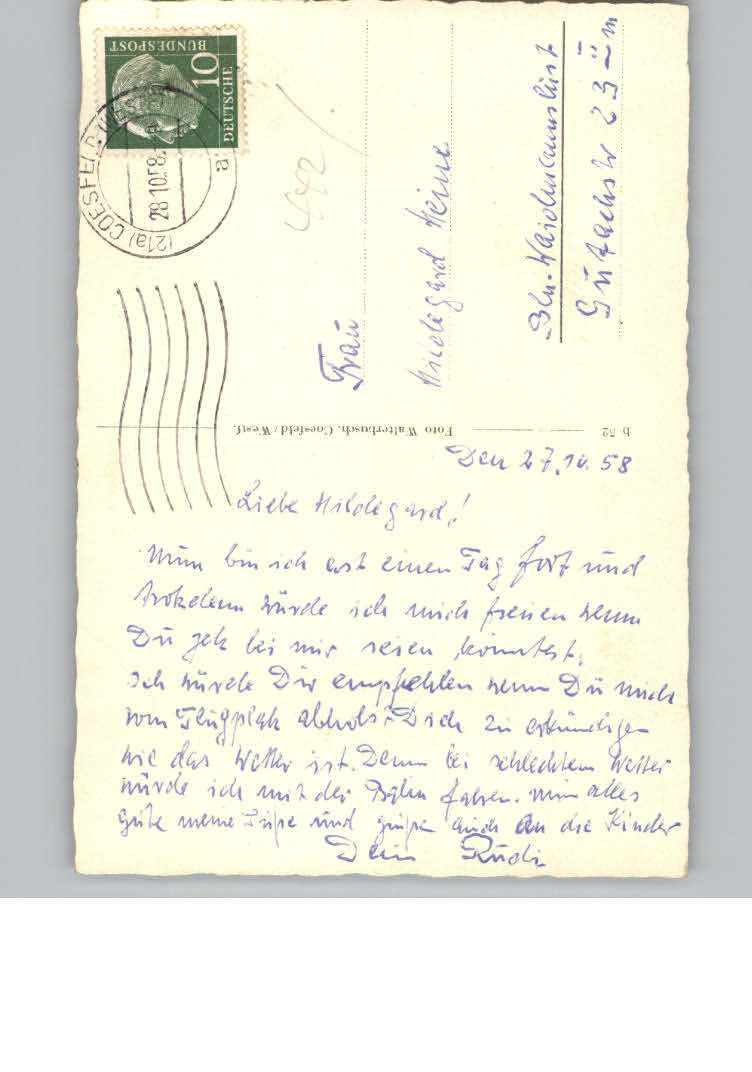 Den 27.10.58
Liebe Hildegard!
Nun bin ich erst einen Tag fort und
trotzdem würde ich mich freuen wenn
Du jetz bei mir seien könntest.
Ich würde Dir empfehlen wenn Du mich
vom Flugplatz abholst Dich zu erkundigen
wie das Wetter ist. Denn bei schlechtem Wetter
würde ich mit der Bahn fahren. Nun alles
Gute meine und grüße auch an die Kinder
Dein Rudi
Frau
Hildegard Heine
Bln.-Waidmannslust
23
442
Foto Walterbusch, Coesfeld/Westf.
b 52
DEUTSCHE
BUNDESPOST
10
(21a) COESFELD (WESTF)
28.10.58
a